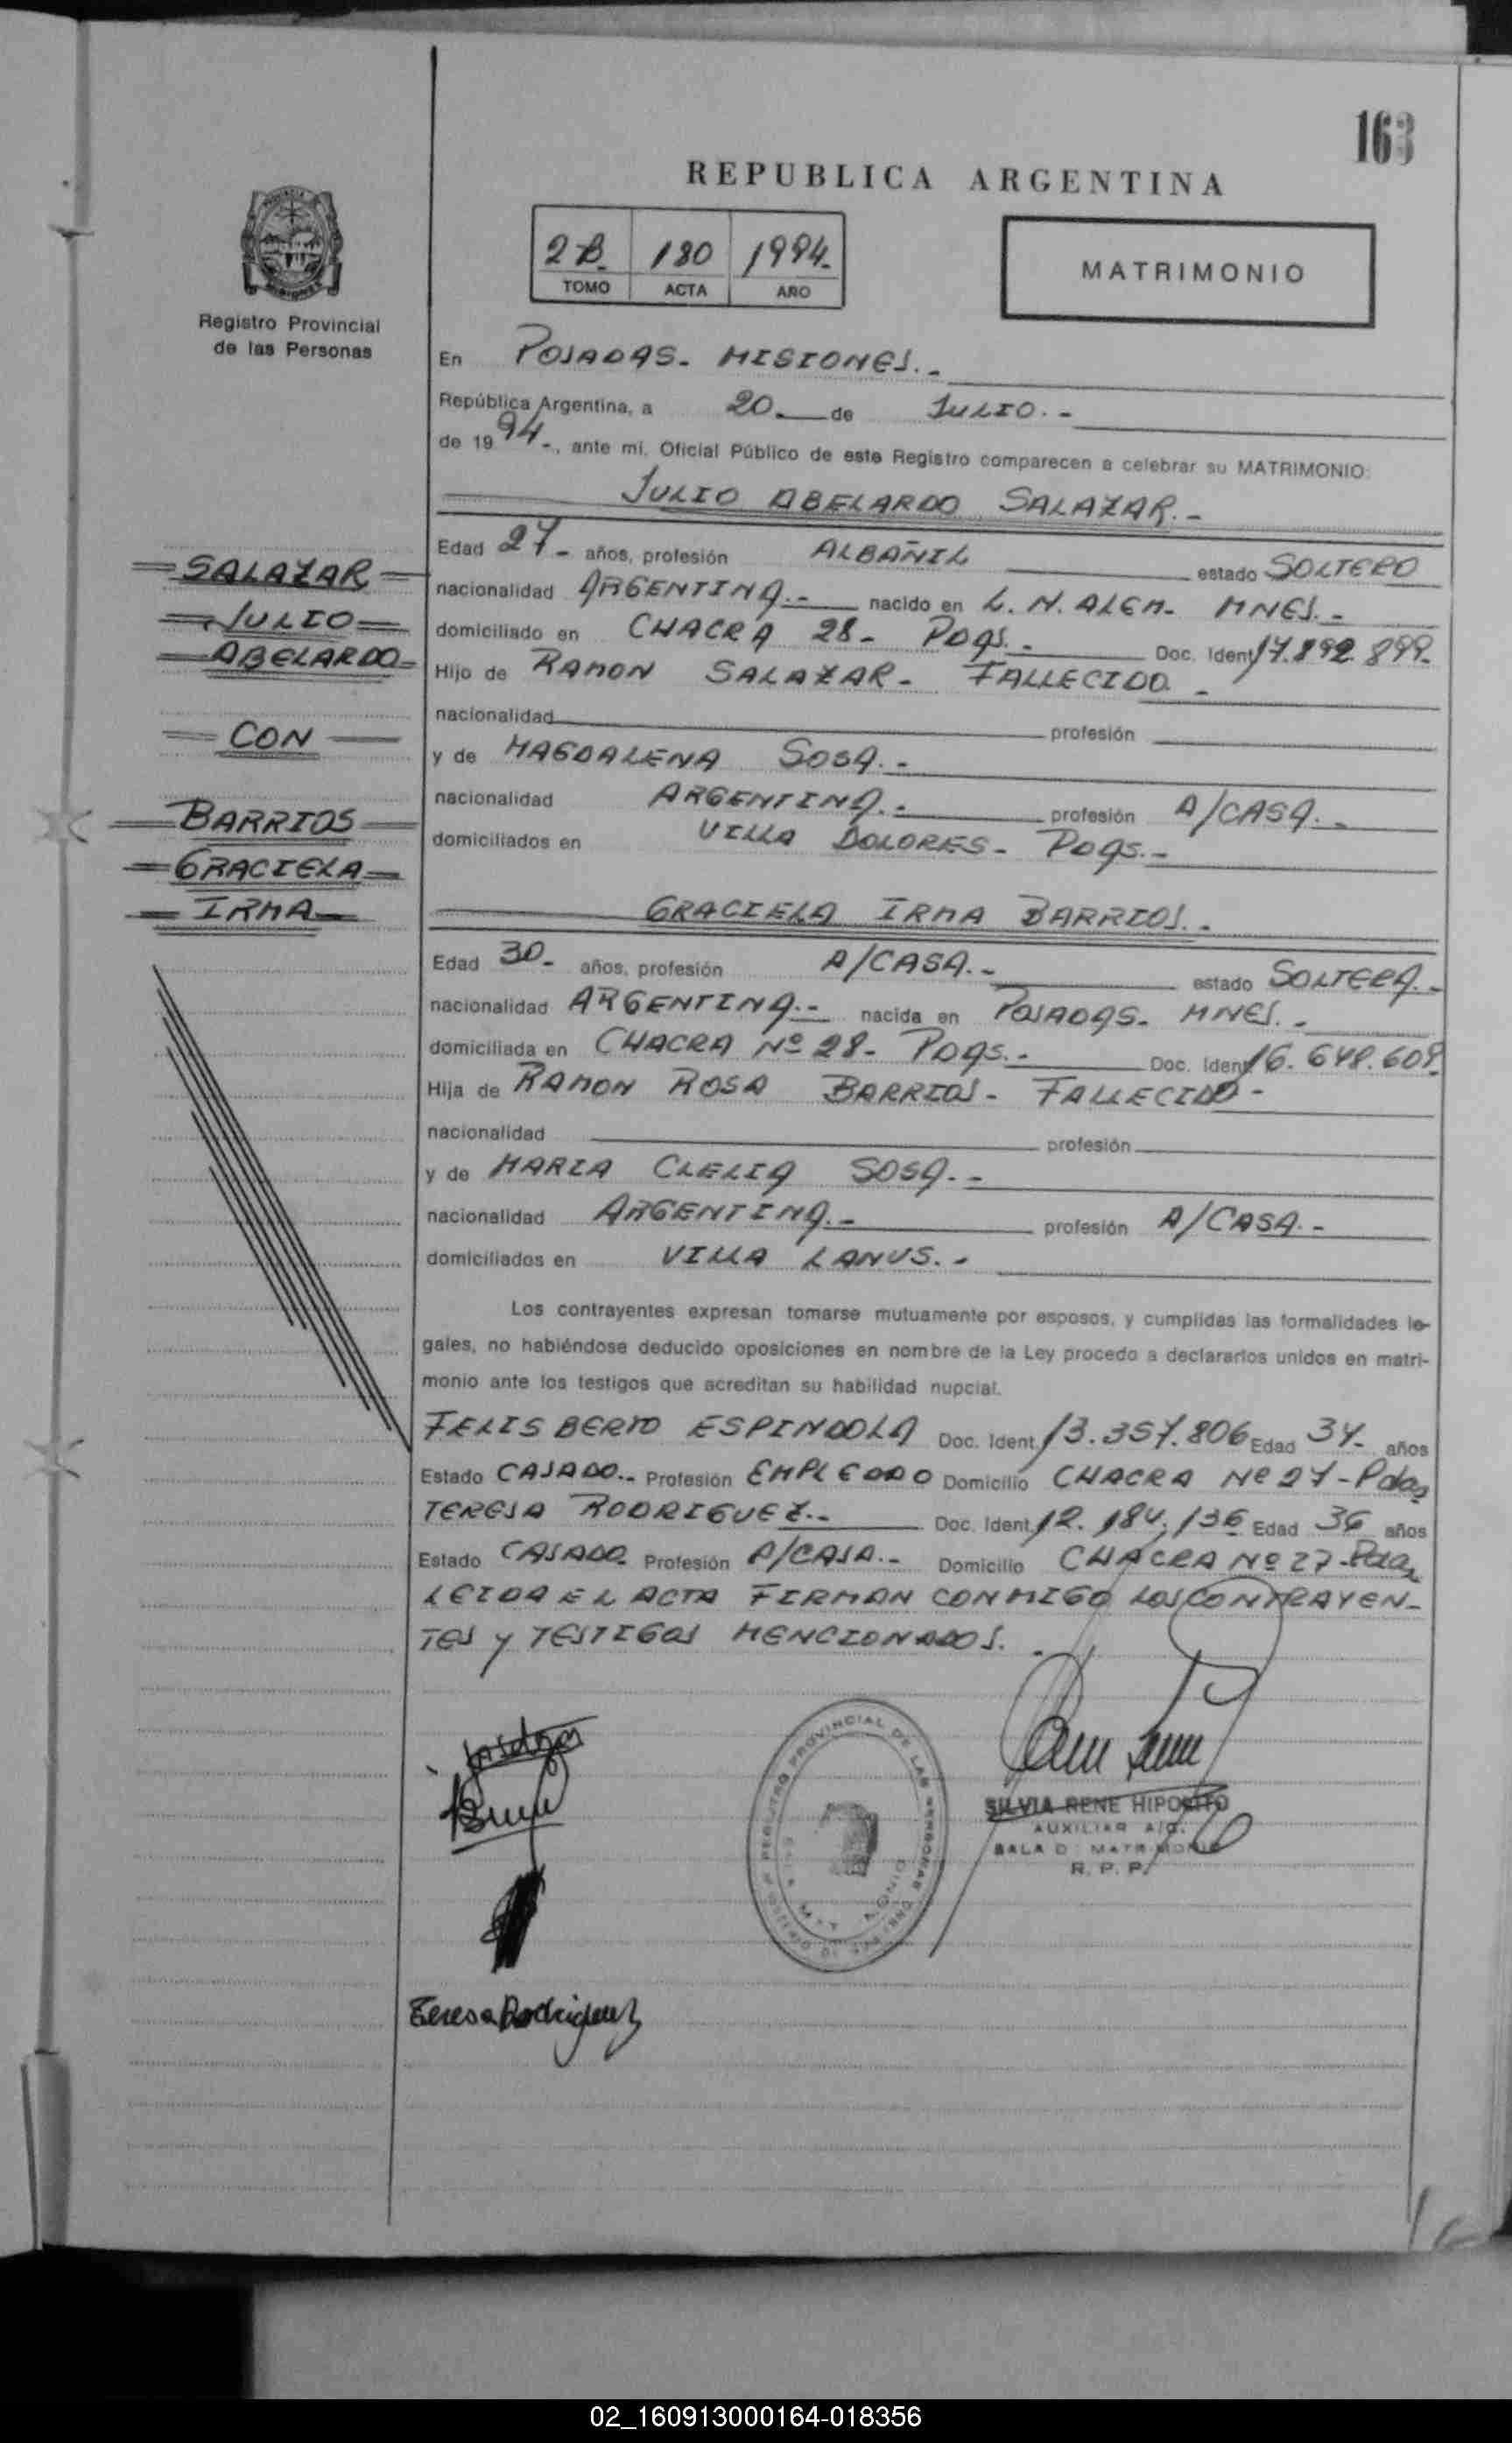 163
REPUBLICA ARGENTINA
2 B. 180 1994.
TOMO ACTA AÑO
MATRIMONIO
Registro Provincial
de las Personas
En POSADAS - MISIONES. -
República Argentina, a 20 de JULIO. -
de 1994 -, ante mi, Oficial Público de este Registro comparecen a celebrar su MATRIMONIO:
JULIO ABELARDO SALAZAR. -
Edad 27 - años, profesión ALBAÑIL estado SOLTERO
nacionalidad ARGENTINA. - nacido en L. N. ALEM - MNES. -
domiciliado en CHACRA 28 - PDAS. - Doc. Ident 17.892.899.
Hijo de RAMON SALAZAR - FALLECIDO -
nacionalidad profesión
y de MAGDALENA SOSA. -
nacionalidad ARGENTINA. - profesión A/CASA. -
domiciliados en VILLA DOLORES - PDAS. -
SALAZAR
JULIO
ABELARDO
CON
BARRIOS
GRACIELA
IRMA
GRACIELA IRMA BARRIOS. -
Edad 30 - años, profesión A/CASA. - estado SOLTERA. -
nacionalidad ARGENTINA. - nacida en POSADAS - MNES. -
domiciliada en CHACRA Nº 28 - PDAS. - Doc. Ident 16.648.609.
Hija de RAMON ROSA BARRIOS - FALLECIDO -
nacionalidad profesión
y de MARIA CLELIA SOSA. -
nacionalidad ARGENTINA. - profesión A/CASA. -
domiciliados en VILLA LANUS. -
Los contrayentes expresan tomarse mutuamente por esposos, y cumplidas las formalidades le-
gales, no habiéndose deducido oposiciones en nombre de la Ley procedo a declararlos unidos en matri-
monio ante los testigos que acreditan su habilidad nupcial.
FELISBERTO ESPINDOLA Doc. Ident. 13.357.806 Edad 34 - años
Estado CASADO. - Profesión EMPLEADO Domicilio CHACRA Nº 27 - Pdas
TERESA RODRIGUEZ. - Doc. Ident. 12.184.136 Edad 36 años
Estado CASADO - Profesión A/CASA. - Domicilio CHACRA Nº 27 - Pdas
LEIDA EL ACTA FIRMAN CONMIGO LOS CONTRAYEN-
TES Y TESTIGOS MENCIONADOS. -
REGISTRO PROVINCIAL DE LAS PERSONAS
SILVIA RENE HIPOLITO
AUXILIAR
SALA D MATRIMONIO
R. P. P.
Teresa Rodriguez
02_160913000164-018356